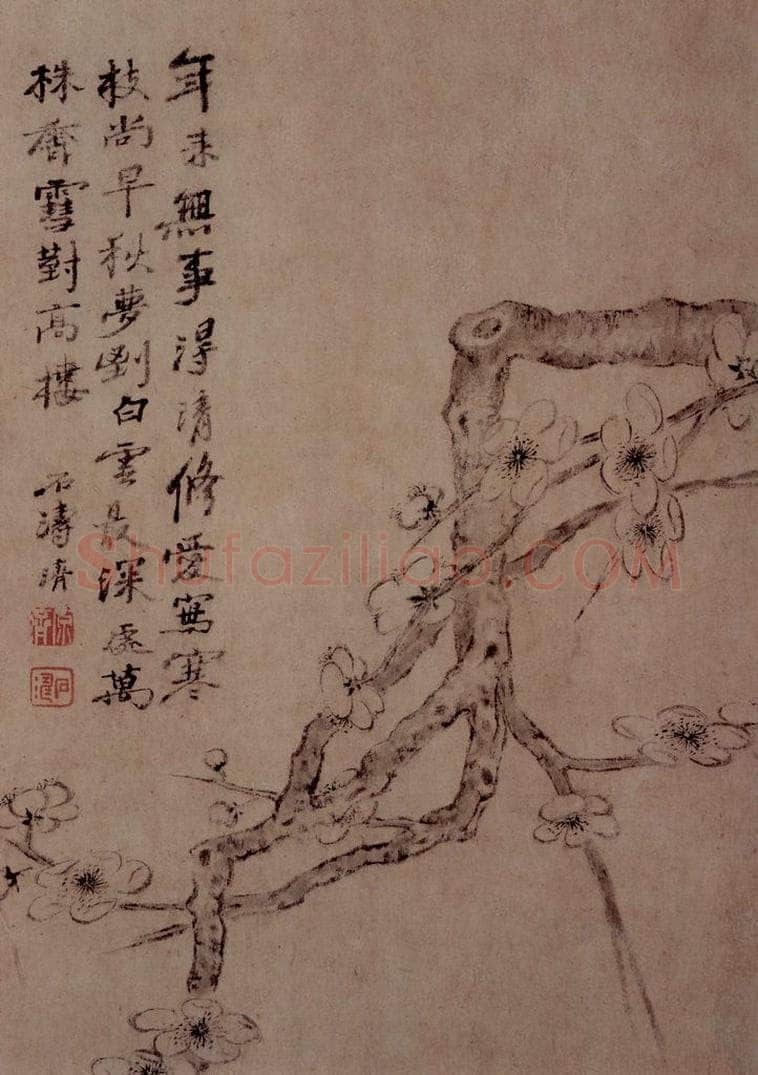 年来無事淂清修愛寫寒
枝尚早秋夢到白雲最深處萬
株齊雪對高樓
石濤濟
Shufaziliao.COM